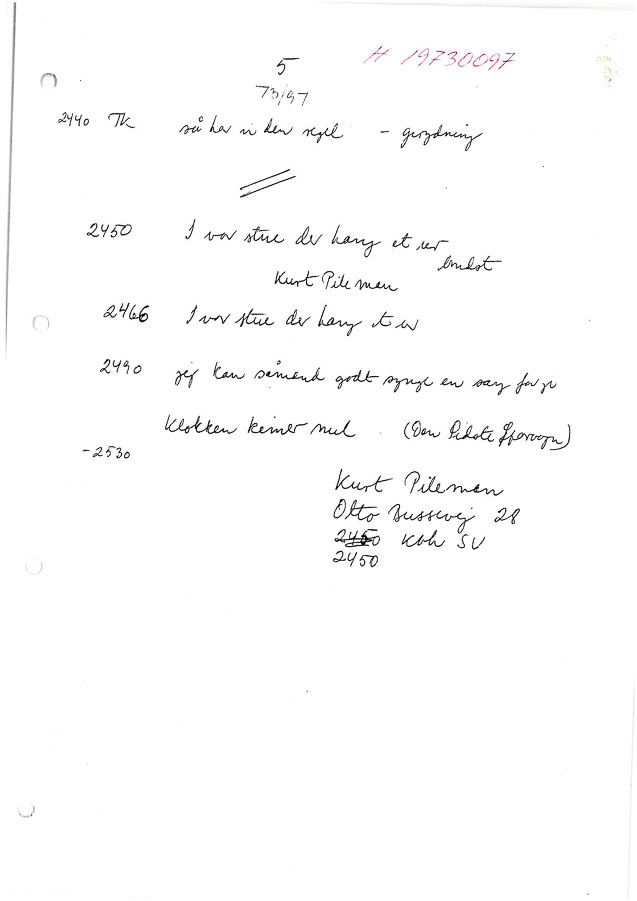 H 19730097
5
73/97
2440 TK så har vi den regel -
2450 I vor stue der hang et ur
Kurt Pileman
2466 I vor stue der hang et ur
2490 jeg kan såmænd godt synge en sang for je
Klokken kimer nul. (Den Pidste Sporvogn)
-2530
Kurt Pileman
Otto Bussevej 28
2450 Kbh SV
2450